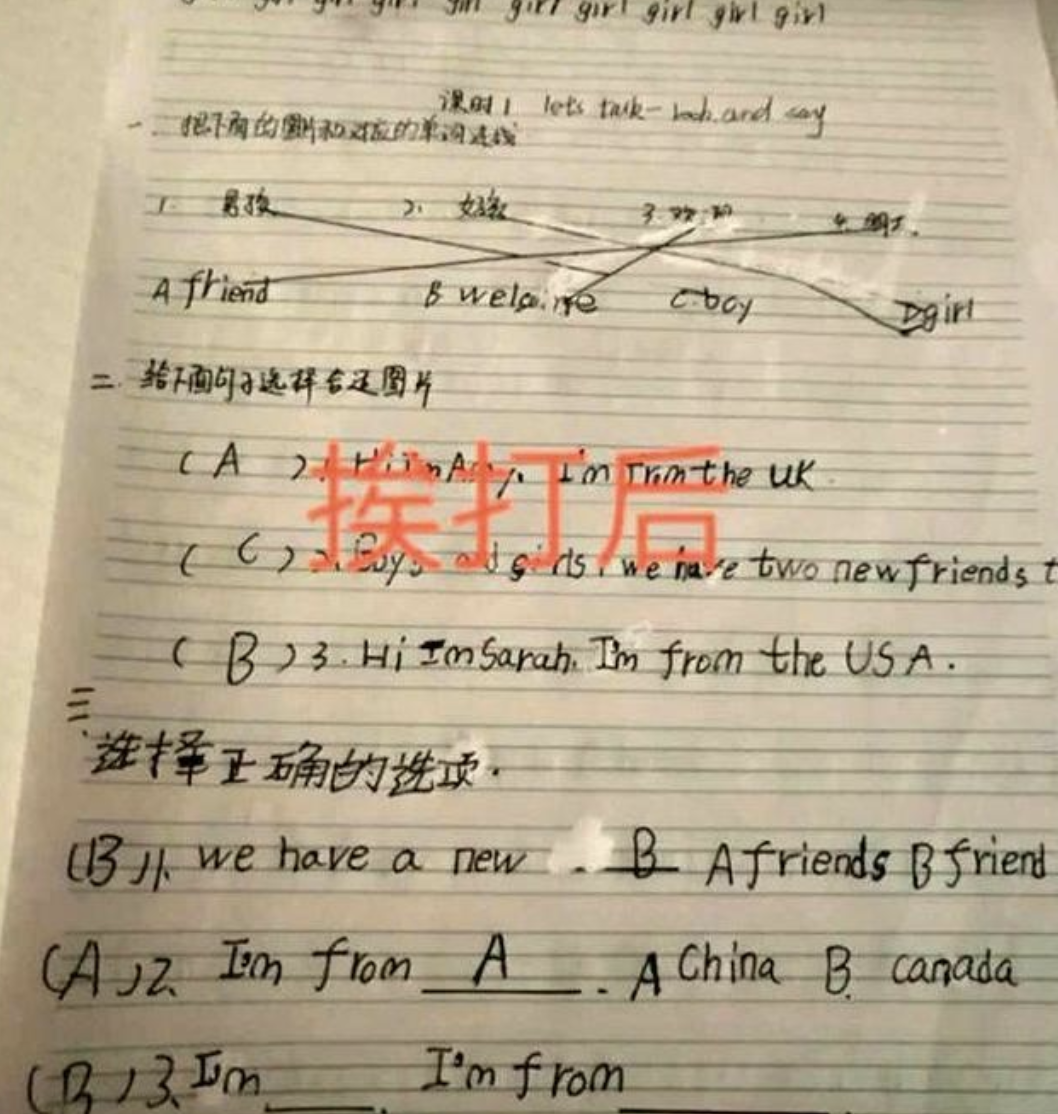 girl girl girl girl girl girl girl girl
课时1 lets talk - look and say
一. 把下面的图片和对应的单词连线
1. 男孩 2. 女孩 3. 欢迎 4. 朋友.
A friend B welcome C. boy D girl
二. 给下面句子选择合适图片
(A) Hi I'm Amy. I'm from the UK.
挨打后
(C) 2. Boys and girls, we have two new friends t
(B) 3. Hi I'm Sarah. I'm from the USA.
三.
选择正确的选项.
(B) 1. we have a new B A friends B friend
(A) 2. I'm from A. A China B. canada
(B) 3. I'm ____. I'm from ____